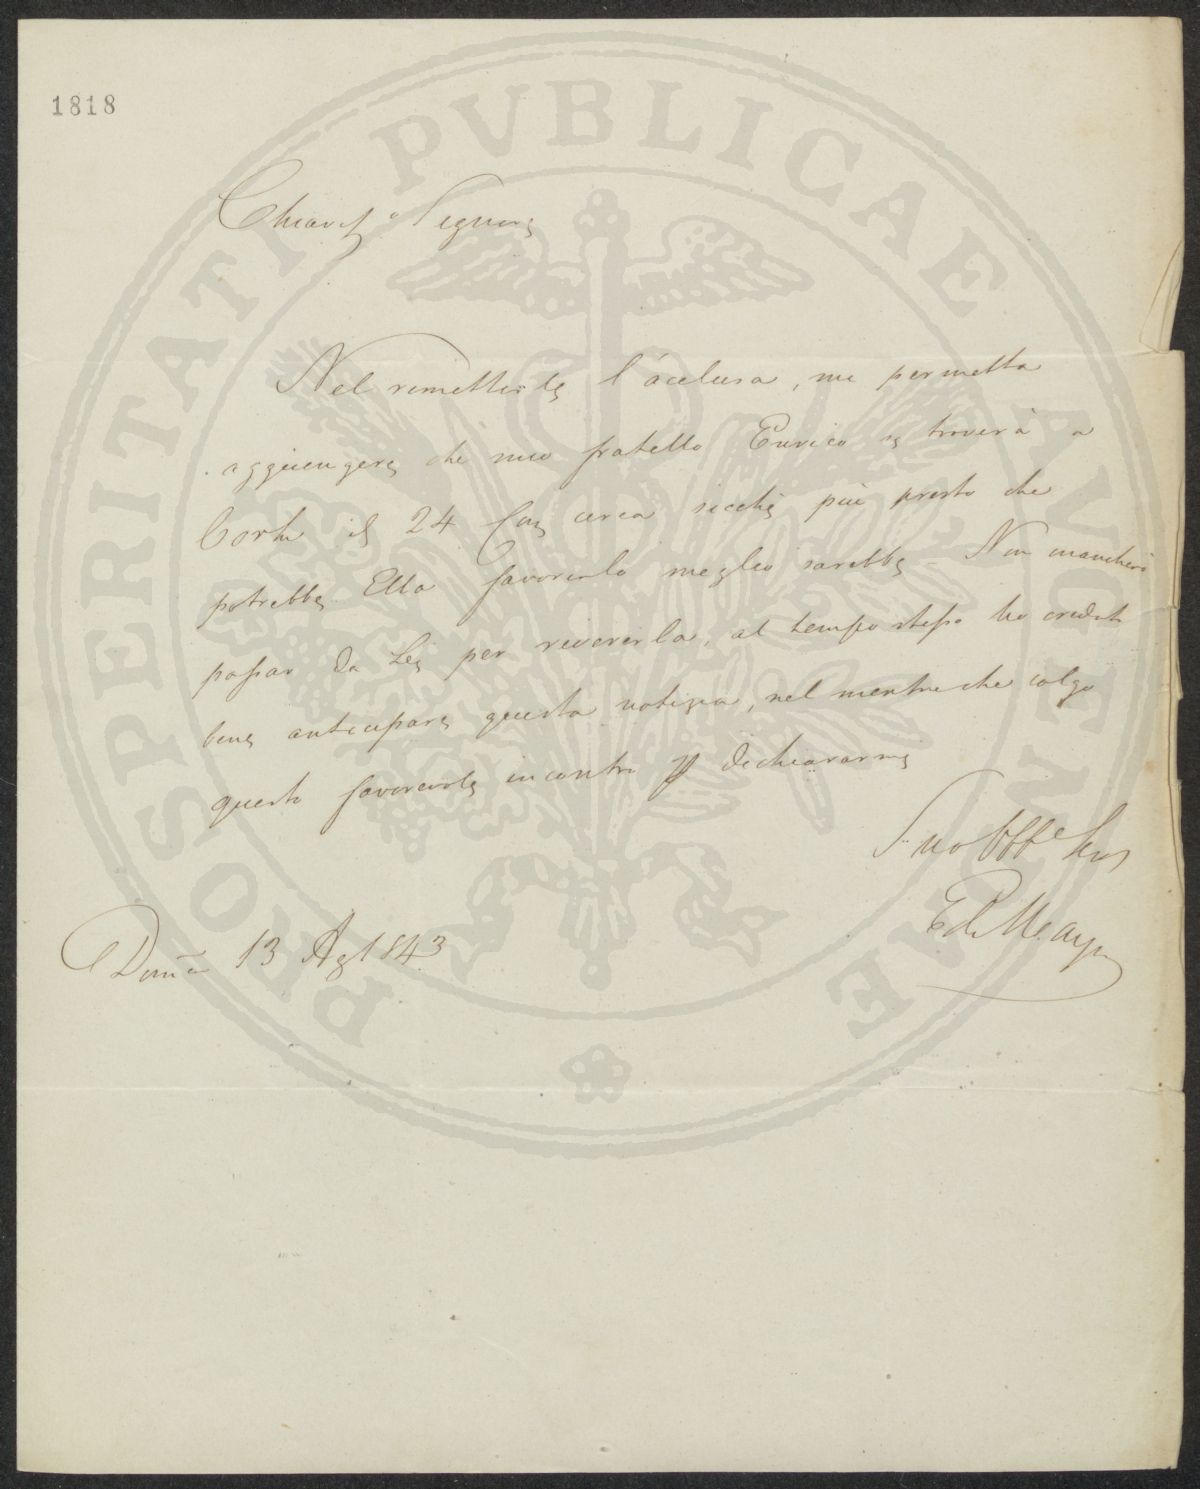 1818
PROSPERITATI PVBLICAE AVGENDAE
Chiariss.o Signore
Nel rimetterle l'acclusa, mi permetta
aggiungere che mio fratello Enrico si troverà a
Corfu il 24 Corr circa sicchè più presto che
potrebbe Ella favorirlo meglio sarebbe – Non mancherò
passar da Lei per riverirla, al tempo stesso ho creduto
bene anticipare questa notizia, nel mentre che colgo
questo favorevole incontro p dichiararmi
Suo
13 Ag 1843